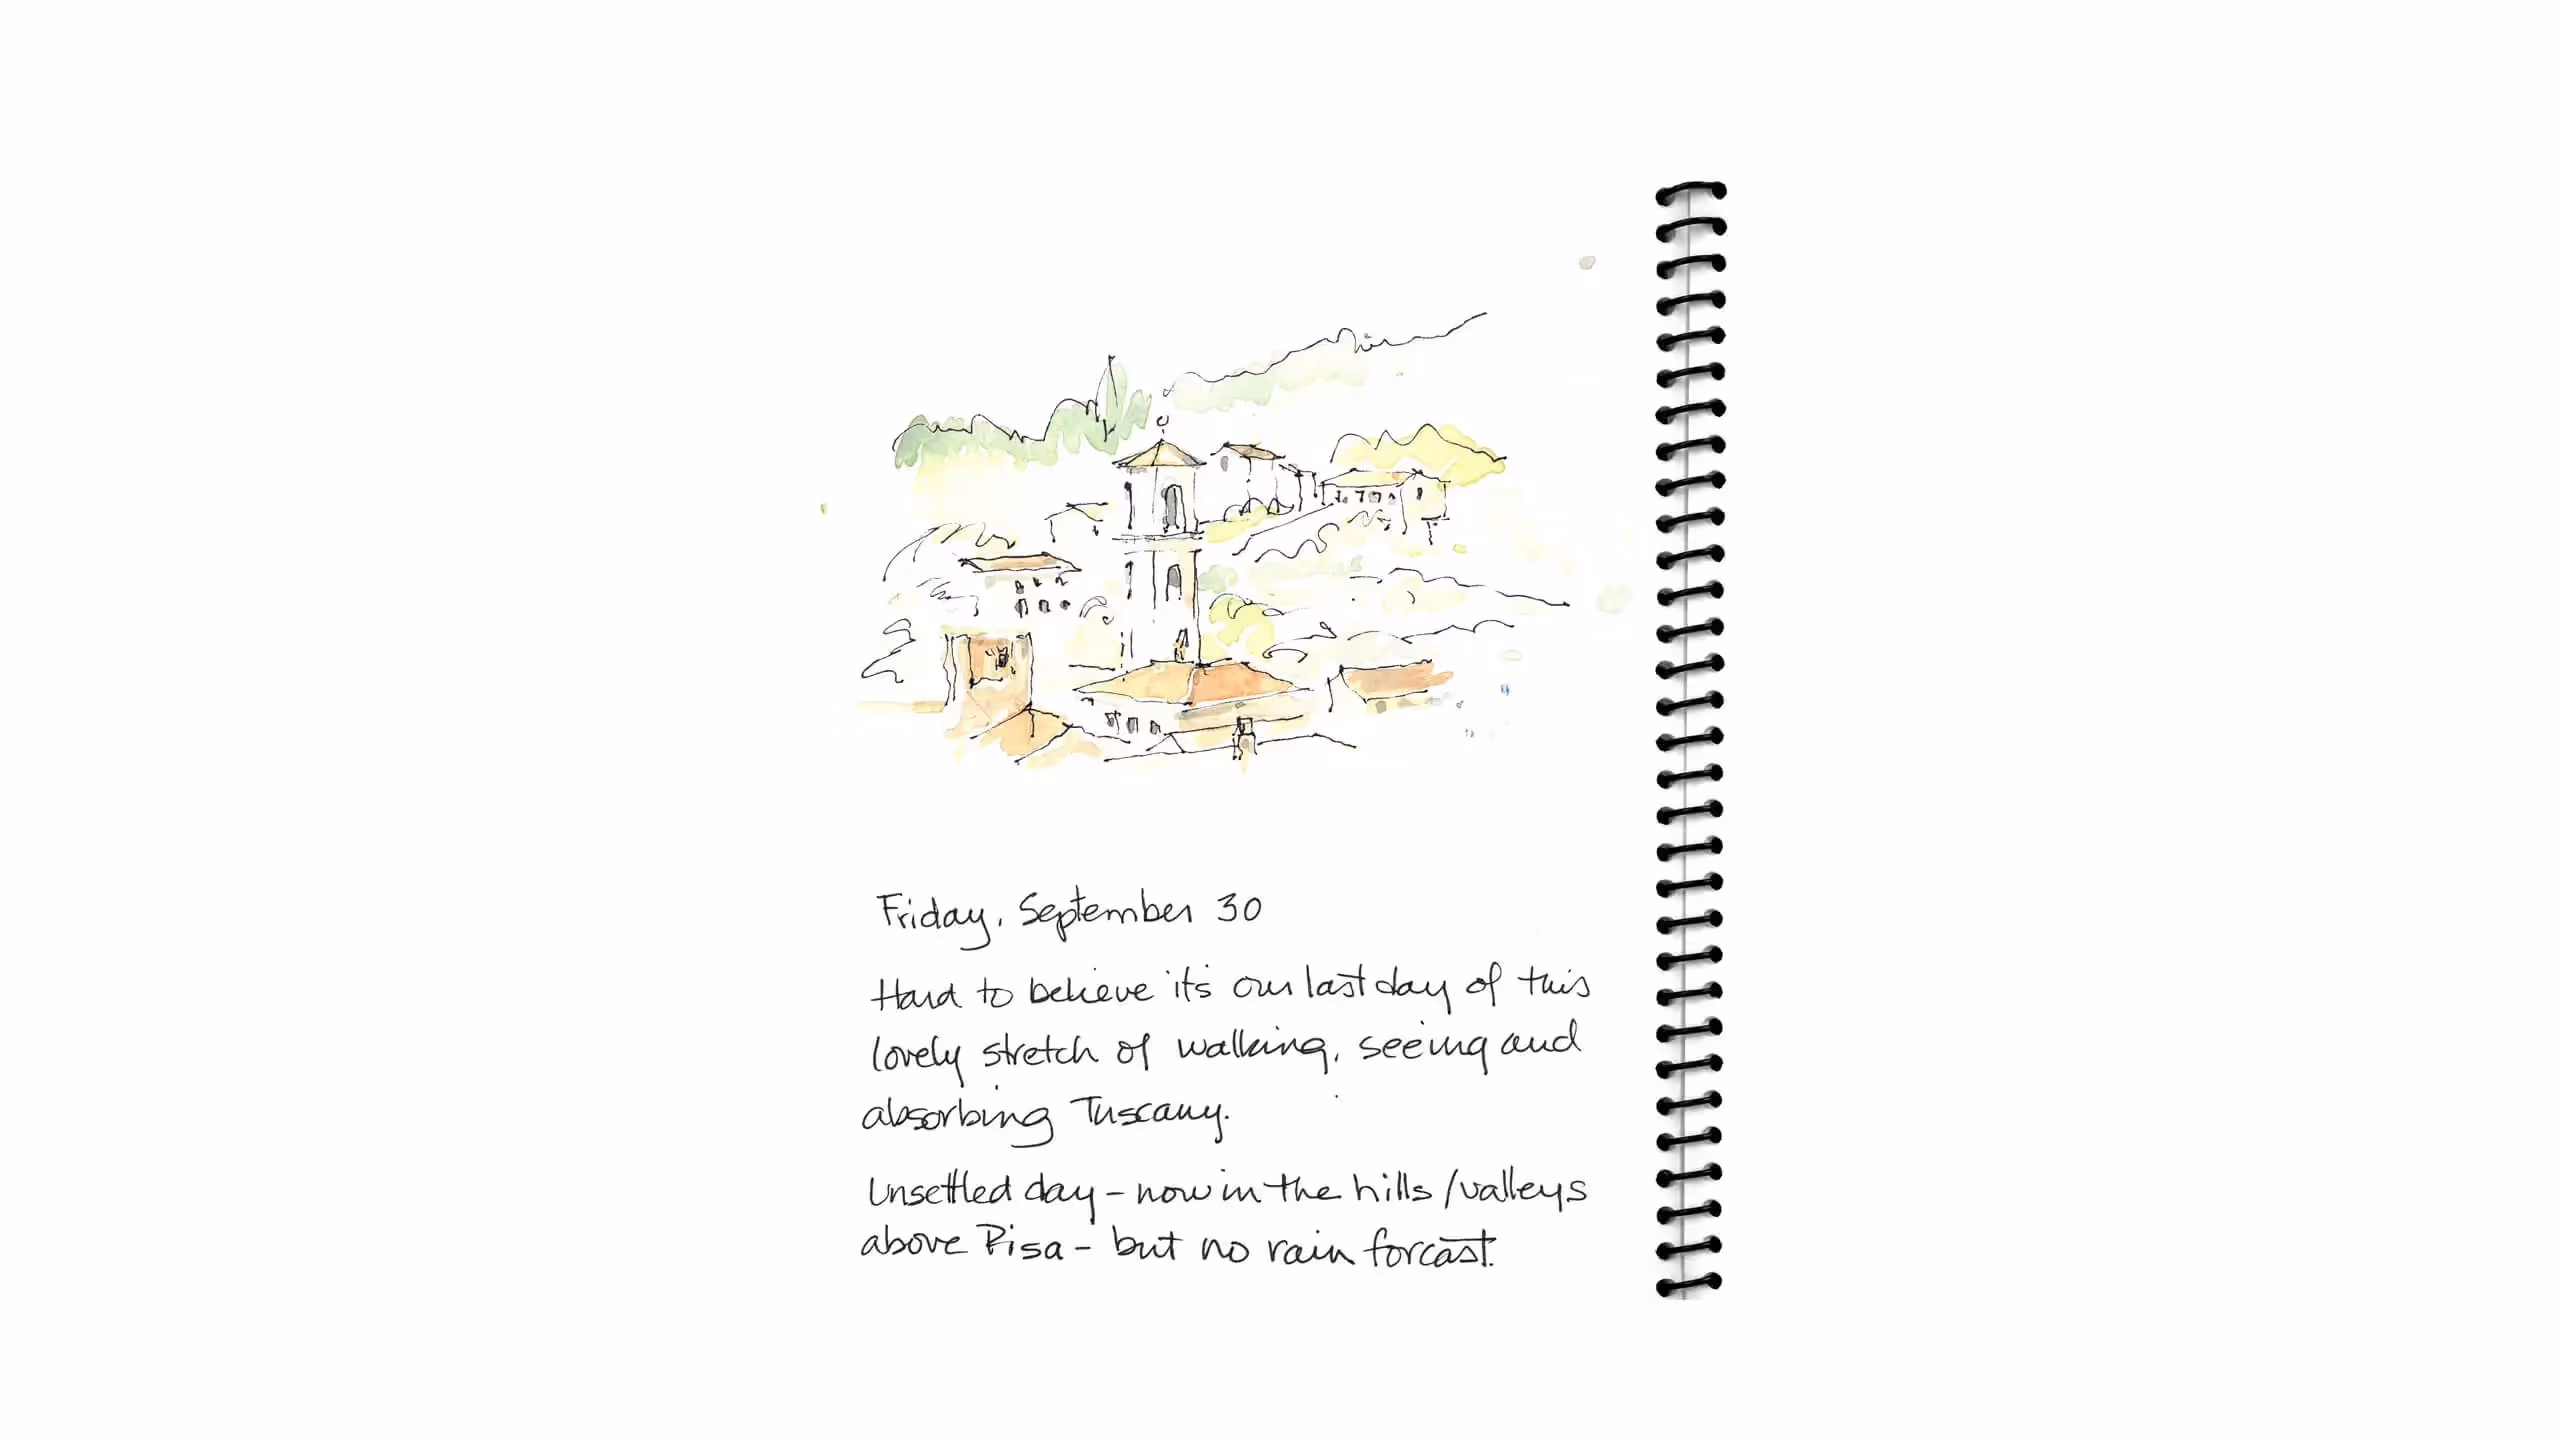 Friday, September 30
Hard to believe it's our last day of this
lovely stretch of walking, seeing and
absorbing Tuscany.
Unsettled day – now in the hills/valleys
above Pisa – but no rain forcast.